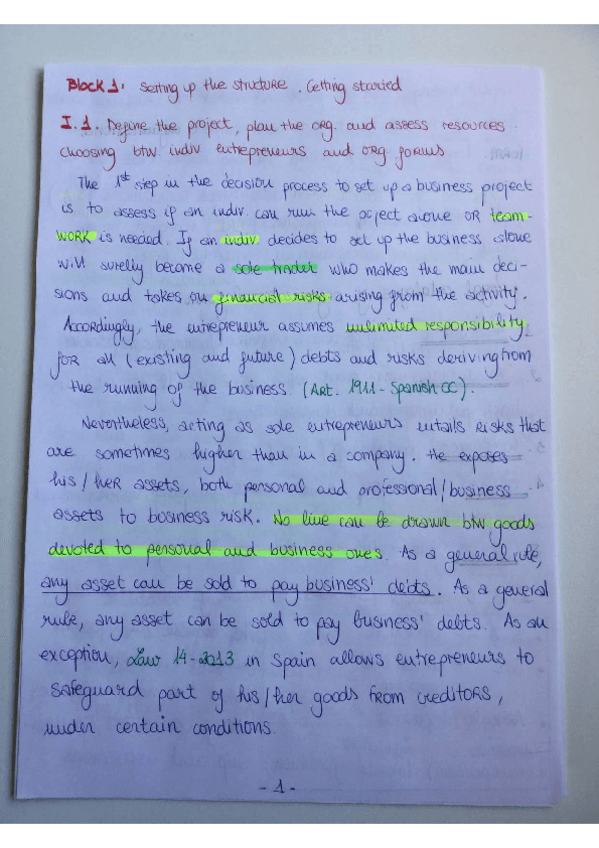 Block 1: Setting up the structure. Getting started
I.1. Define the project, plan the org. and assess resources.
choosing btw. indiv entrepreneurs and org forms
The 1st step in the decision process to set up a business project
is to assess if an indiv. can run the project alone OR team-
work is needed. If an indiv decides to set up the business alone
will surelly become a sole trader who makes the main deci-
sions and takes on financial risks arising from the activity.
Accordingly, the entrepreneur assumes unlimited responsibility
for all (existing and future) debts and risks deriving from
the running of the business. (Art. 1911 - Spanish CC).
Nevertheless, acting as sole entrepreneurs entails risks that
are sometimes higher than in a company. He exposes
his/her assets, both personal and professional/business
assets to business risk. No line can be drawn btw goods
devoted to personal and business ones. As a general rule,
any asset can be sold to pay business' debts. As a general
rule, any asset can be sold to pay business' debts. As an
exception, Law 14-2013 in Spain allows entrepreneurs to
safeguard part of his/her goods from creditors,
under certain conditions.
- 1 -